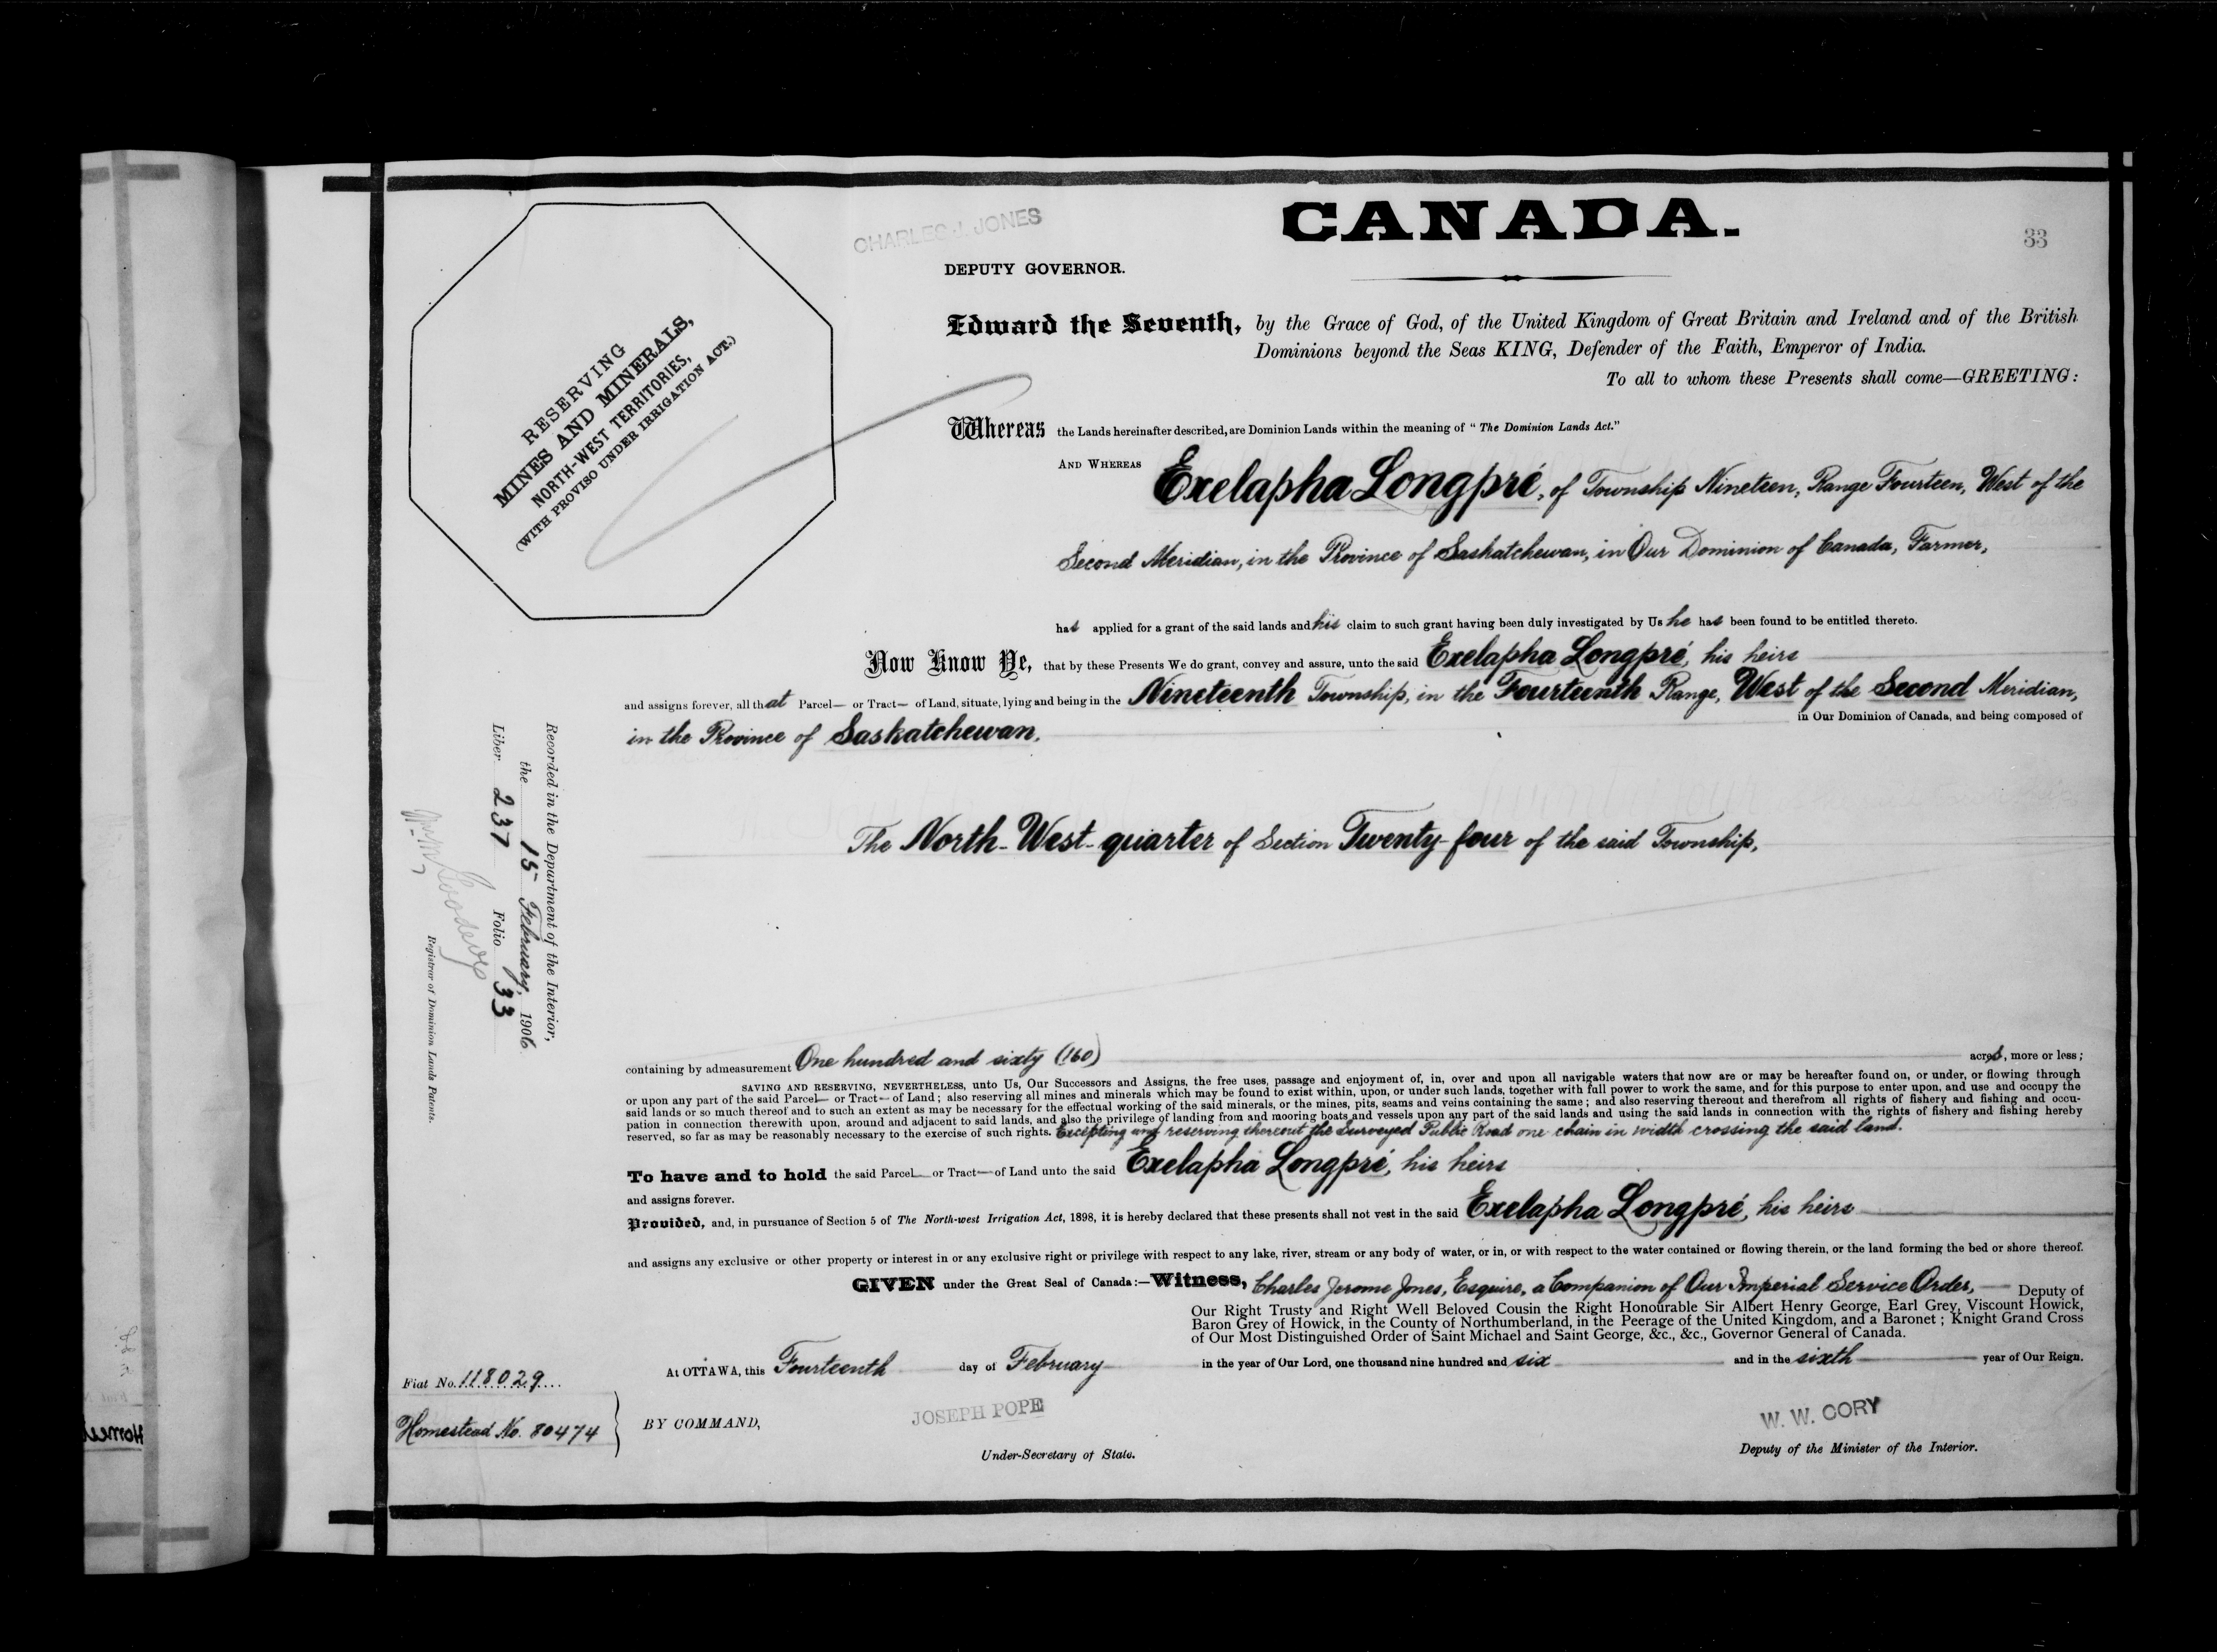 CHARLES J. JONES
CANADA.
33
DEPUTY GOVERNOR.
RESERVING
MINES AND MINERALS,
NORTH-WEST TERRITORIES,
(WITH PROVISO UNDER IRRIGATION ACT.)
Edward the Seventh, by the Grace of God, of the United Kingdom of Great Britain and Ireland and of the British
Dominions beyond the Seas KING, Defender of the Faith, Emperor of India.
To all to whom these Presents shall come—GREETING:
Whereas the Lands hereinafter described, are Dominion Lands within the meaning of "The Dominion Lands Act."
AND WHEREAS Exelapha Longpré, of Township Nineteen, Range Fourteen, West of the
Second Meridian, in the Province of Saskatchewan, in Our Dominion of Canada, Farmer,
has applied for a grant of the said lands and his claim to such grant having been duly investigated by Us he has been found to be entitled thereto.
Now Know Ye, that by these Presents We do grant, convey and assure, unto the said Exelapha Longpré, his heirs
and assigns forever, all that Parcel— or Tract— of Land, situate, lying and being in the Nineteenth Township, in the Fourteenth Range, West of the Second Meridian,
in the Province of Saskatchewan, in Our Dominion of Canada, and being composed of
The North-West-quarter of Section Twenty-four of the said Township,
Recorded in the Department of the Interior,
the 15 February, 1906
Liber 237 Folio 33
Registrar of Dominion Lands Patents.
containing by admeasurement One hundred and sixty (160) acres, more or less;
SAVING AND RESERVING, NEVERTHELESS, unto Us, Our Successors and Assigns, the free uses, passage and enjoyment of, in, over and upon all navigable waters that now are or may be hereafter found on, or under, or flowing through
or upon any part of the said Parcel— or Tract— of Land; also reserving all mines and minerals which may be found to exist within, upon, or under such lands, together with full power to work the same, and for this purpose to enter upon, and use and occupy the
said lands or so much thereof and to such an extent as may be necessary for the effectual working of the said minerals, or the mines, pits, seams and veins containing the same; and also reserving thereout and therefrom all rights of fishery and fishing and occu-
pation in connection therewith upon, around and adjacent to said lands, and also the privilege of landing from and mooring boats and vessels upon any part of the said lands and using the said lands in connection with the rights of fishery and fishing hereby
reserved, so far as may be reasonably necessary to the exercise of such rights. Excepting and reserving thereout the Surveyed Public Road one chain in width crossing the said land.
To have and to hold the said Parcel— or Tract— of Land unto the said Exelapha Longpré, his heirs
and assigns forever.
Provided, and, in pursuance of Section 5 of The North-west Irrigation Act, 1898, it is hereby declared that these presents shall not vest in the said Exelapha Longpré, his heirs
and assigns any exclusive or other property or interest in or any exclusive right or privilege with respect to any lake, river, stream or any body of water, or in, or with respect to the water contained or flowing therein, or the land forming the bed or shore thereof.
GIVEN under the Great Seal of Canada:—Witness, Charles Jerome Jones, Esquire, a Companion of Our Imperial Service Order, Deputy of
Our Right Trusty and Right Well Beloved Cousin the Right Honourable Sir Albert Henry George, Earl Grey, Viscount Howick,
Baron Grey of Howick, in the County of Northumberland, in the Peerage of the United Kingdom, and a Baronet; Knight Grand Cross
of Our Most Distinguished Order of Saint Michael and Saint George, &c., &c., Governor General of Canada.
At OTTAWA, this Fourteenth day of February in the year of Our Lord, one thousand nine hundred and six and in the sixth year of Our Reign.
Fiat No. 118029
Homestead No. 80474
BY COMMAND,
JOSEPH POPE
Under-Secretary of State.
W. W. CORY
Deputy of the Minister of the Interior.